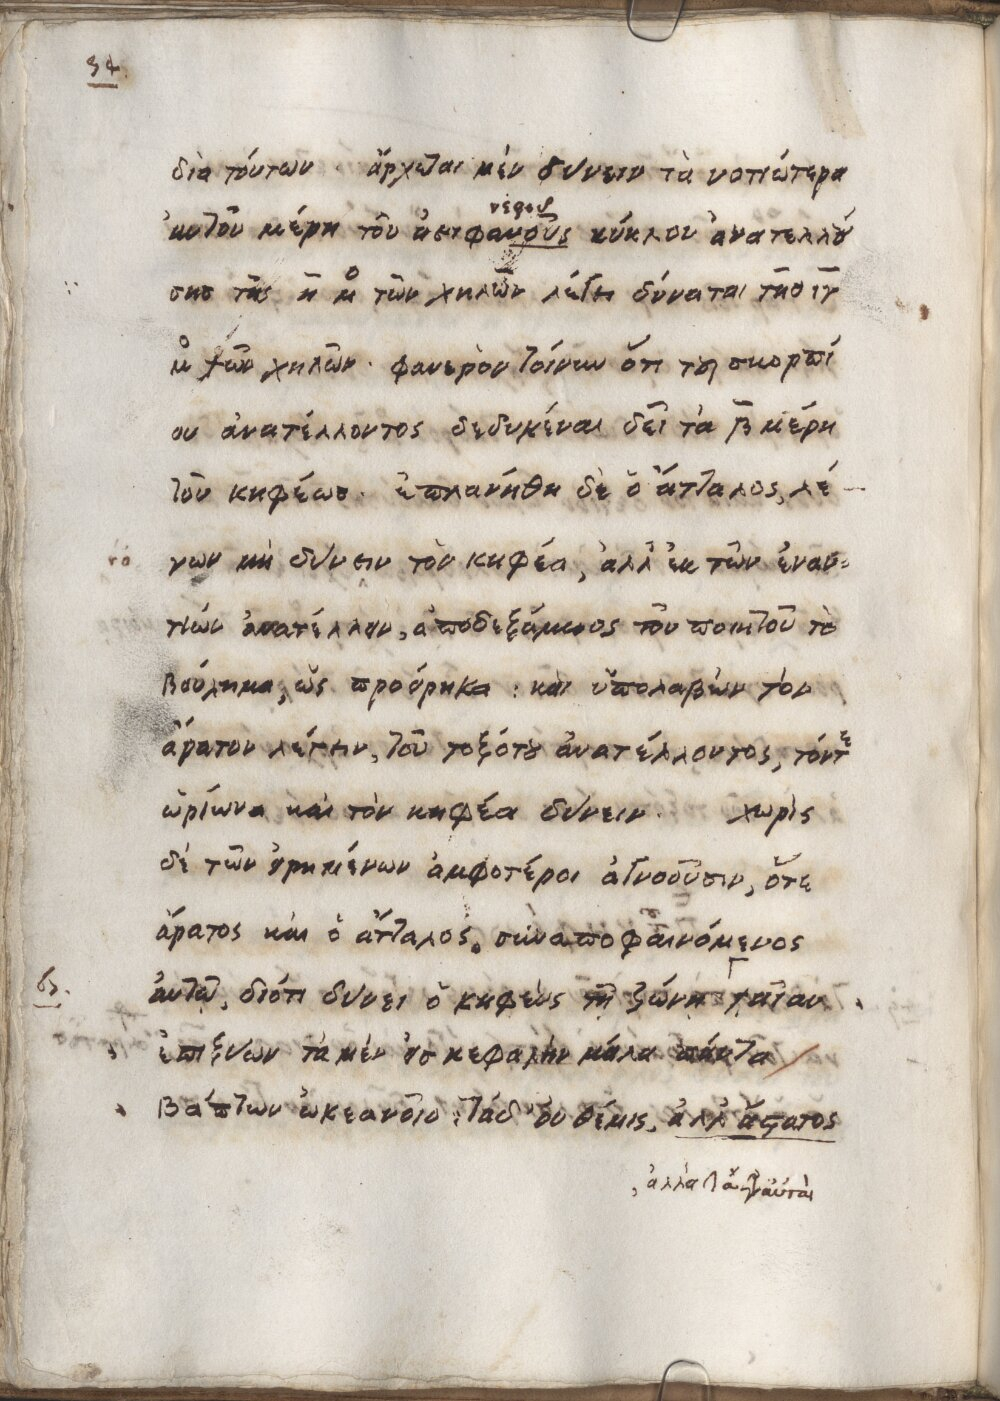 34.
διὰ τόυτων · ἄρχεται μὲν δύνειν τὰ νοτιώτερα
ἀυτοῦ μέρη τοῦ ἀειφανοῦς κύκλου ἀνατελλού
σης τῆς η̄ μο τῶν χηλῶν λέγει δύναται τῆς ιγ
μο τῶν χηλῶν · φανερὸν τοίνυν ὅτι τοῦ σκορπί
ου ἀνατέλλοντος δεδυκέναι δεῖ τὰ β̄ μέρη
τοῦ κηφέως · ἐπλανήθη δὲ ὁ ἄτταλος, λέ
γων μὴ δύνειν τὸν κηφέα, ἀλλ' ἐκ τῶν ἐναν=
τίων ἀνατέλλειν, ἀποδεξάμενος τοῦ ποιητοῦ τὸ
βούλημα, ὡς προείρηκα : καὶ ὑπολαβὼν τὸν
ἄρατον λέγειν, τοῦ τοξότου ἀνατέλλοντος, τόντε
ὠρίωνα καὶ τὸν κηφέα δύνειν · χωρὶς
δὲ τῶν εἰρημένων ἀμφοτέροι ἀγνοοῦσιν, ὅτε
ἄρατος καὶ ὁ ἄτταλος, συναποφαινόμενος
ἀυτῷ, διότι δύνει ὁ κηφεὺς τῇ ζώνῃ γαῖαν
ἐπιξύων τὰ μὲν εἰς κεφαλὴν μάλα πάντα
βάπτων ὠκεανοῖο : τάδ' ὀυ θέμις, ἀλλ' ἄρατος